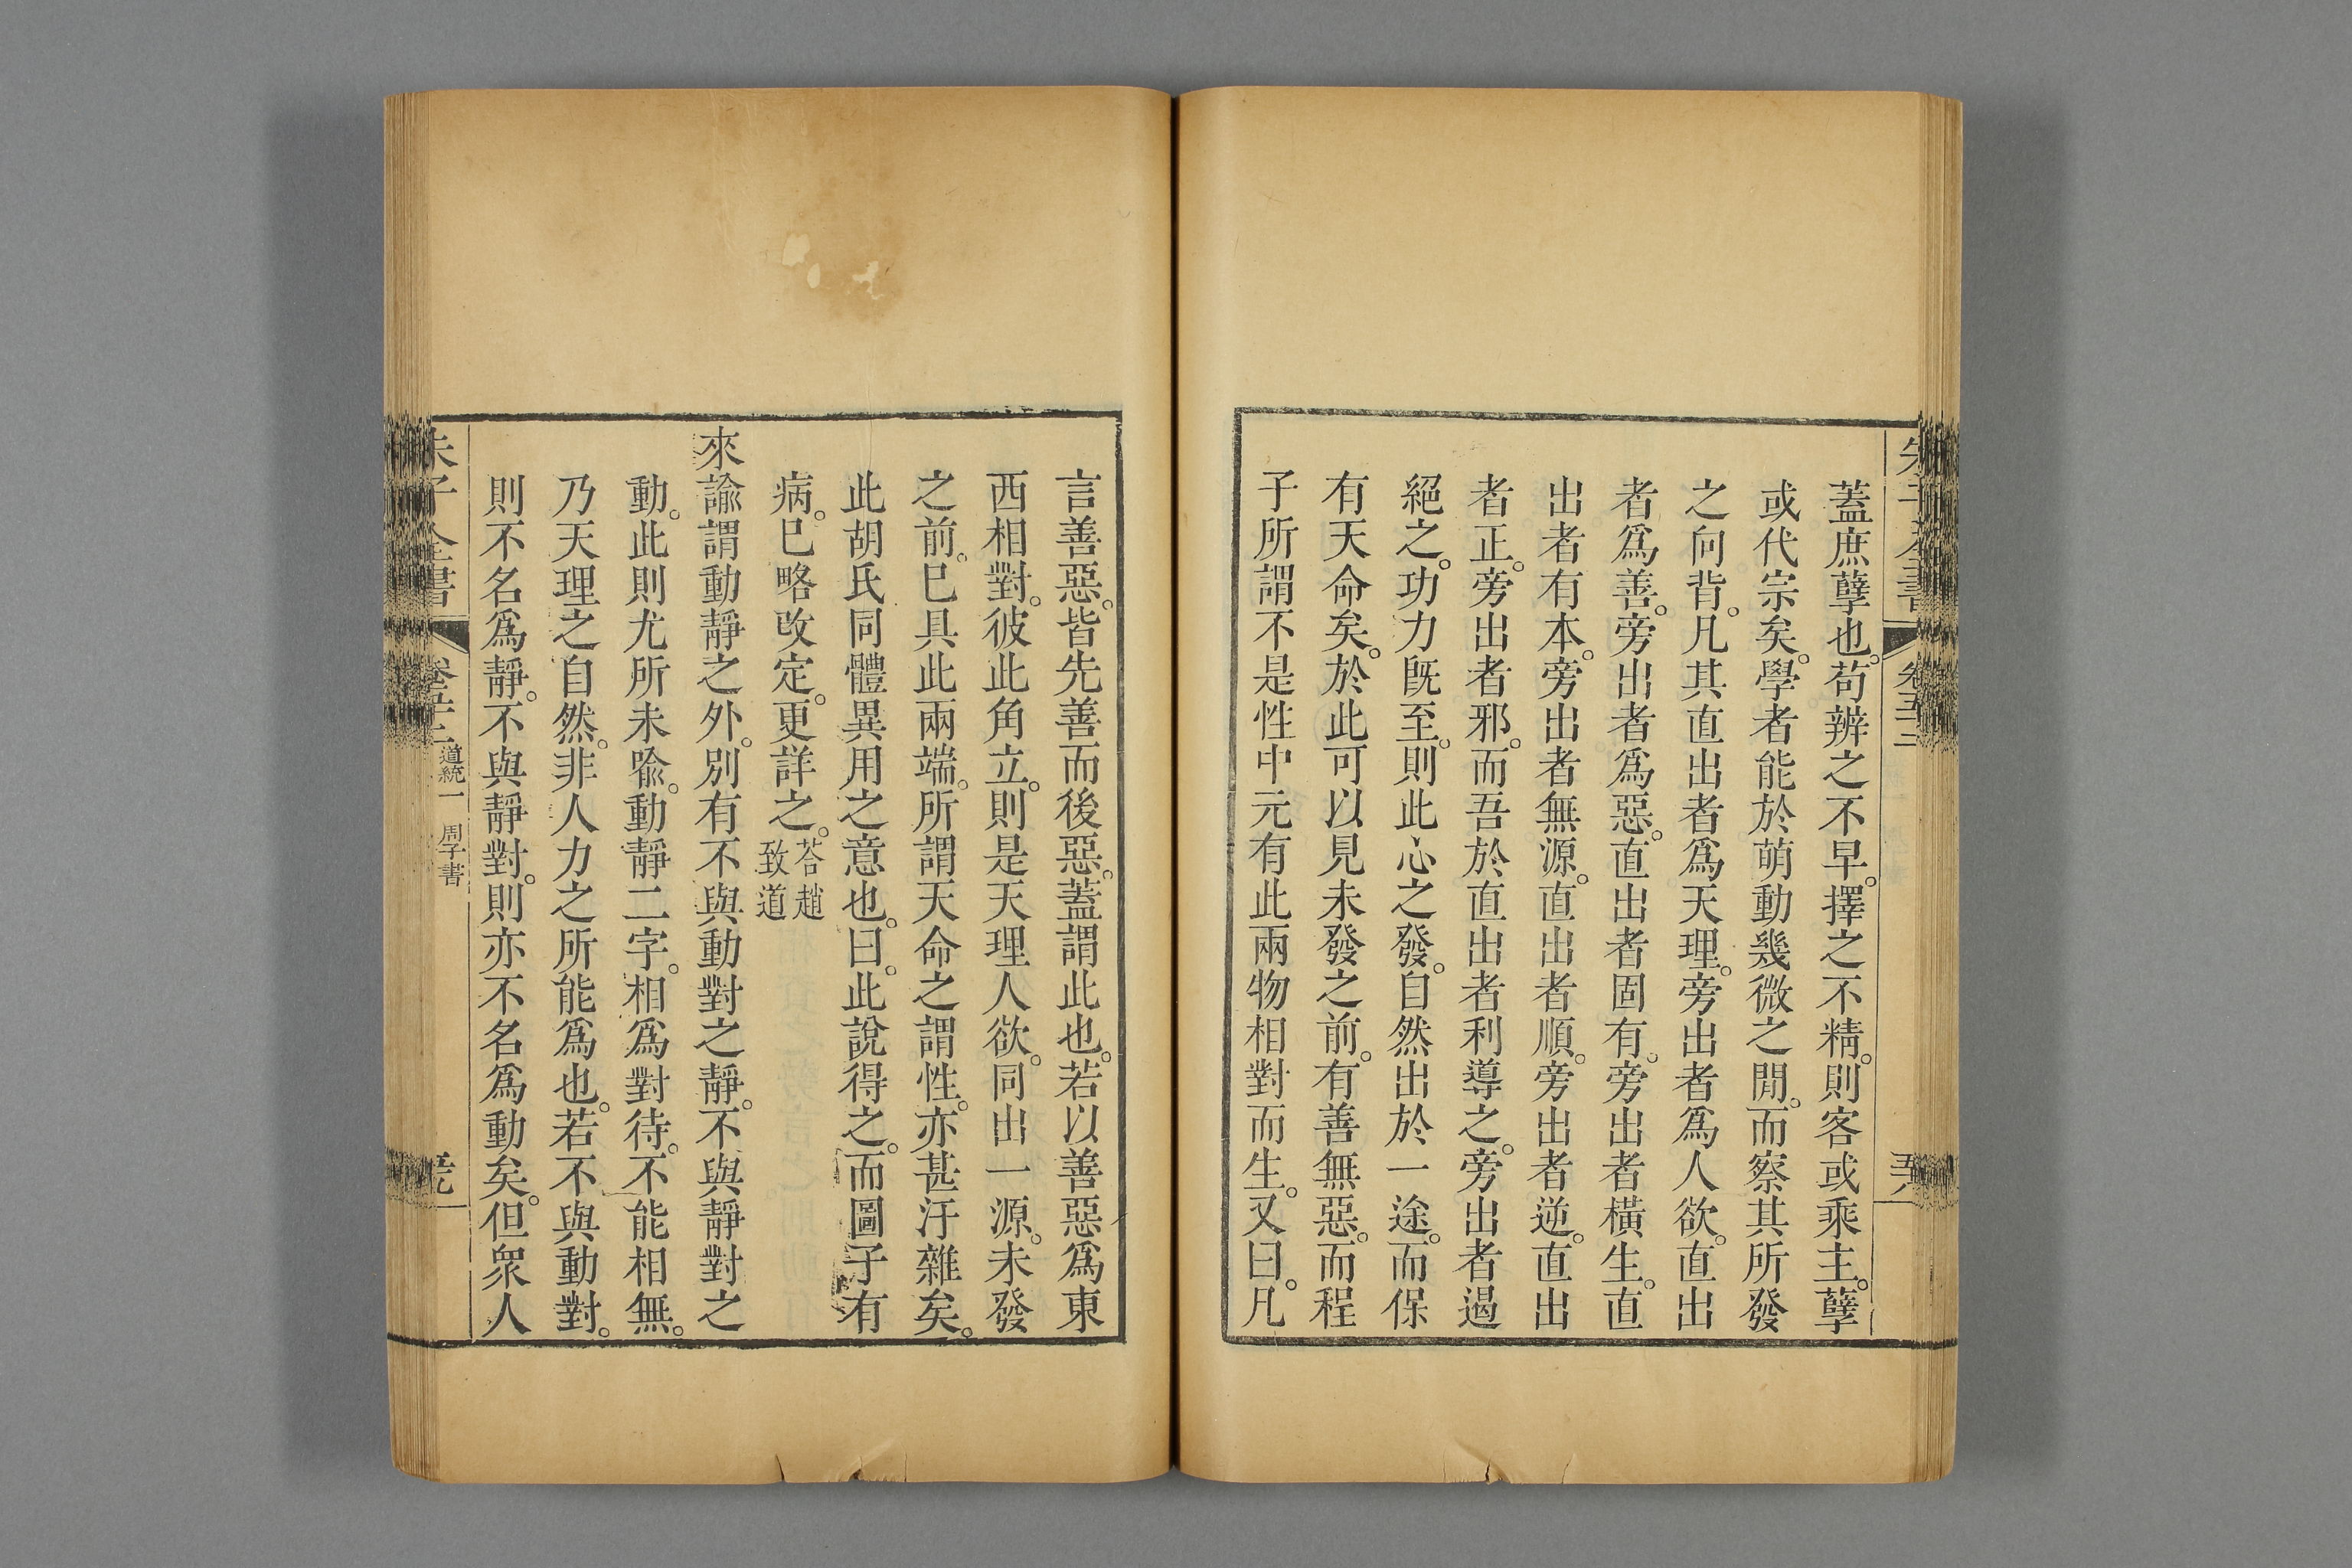 蓋庶孽也。苟辨之不早。擇之不精。則客或乘主。孽
或代宗矣。學者能於萌動幾微之閒。而察其所發
之向背。凡其直出者爲天理。旁出者爲人欲。直出
者爲善。旁出者爲惡。直出者固有。旁出者橫生。直
出者有本。旁出者無源。直出者順。旁出者逆。直出
者正。旁出者邪。而吾於直出者利導之。旁出者遏
絕之。功力旣至。則此心之發。自然出於一途。而保
有天命矣。於此可以見未發之前。有善無惡。而程
子所謂不是性中元有此兩物相對而生。又曰。凡
言善惡。皆先善而後惡。蓋謂此也。若以善惡爲東
西相對。彼此角立。則是天理人欲。同出一源。未發
之前。已具此兩端。所謂天命之謂性。亦甚汙雜矣。
此胡氏同體異用之意也。曰。此說得之。而圖子有
病。已略改定。更詳之。荅趙致道
來諭謂動靜之外。別有不與動對之靜。不與靜對之
動。此則尤所未喻。動靜二字。相爲對待。不能相無。
乃天理之自然。非人力之所能爲也。若不與動對。
則不名爲靜。不與靜對。則亦不名爲動矣。但眾人
朱子全書 道統一 周子書